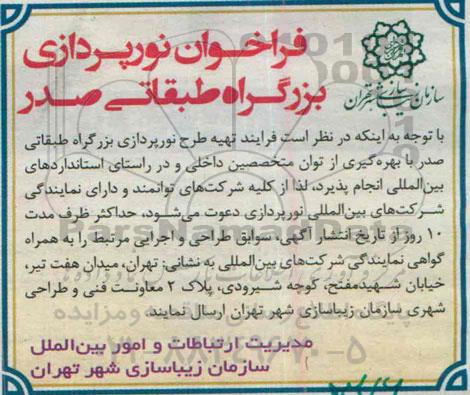 فراخوان نورپردازی
بزرگراه طبقاتی صدر
سازمان زیباسازی شهر تهران
با توجه به اینکه در نظر است فرایند تهیه طرح نورپردازی بزرگراه طبقاتی
صدر با بهره‌گیری از توان متخصصین داخلی و در راستای استانداردهای
بین‌المللی انجام پذیرد، لذا از کلیه شرکت‌های توانمند و دارای نمایندگی
شرکت‌های بین‌المللی نورپردازی دعوت می‌شود، حداکثر ظرف مدت
۱۰ روز از تاریخ انتشار آگهی، سوابق طراحی و اجرایی مرتبط را به همراه
گواهی نمایندگی شرکت‌های بین‌المللی به نشانی: تهران، میدان هفت تیر،
خیابان شهیدمفتح، کوچه شیرودی، پلاک ۲ معاونت فنی و طراحی
شهری سازمان زیباسازی شهر تهران ارسال نمایند.
مدیریت ارتباطات و امور بین‌الملل
سازمان زیباسازی شهر تهران
ParsNamadData